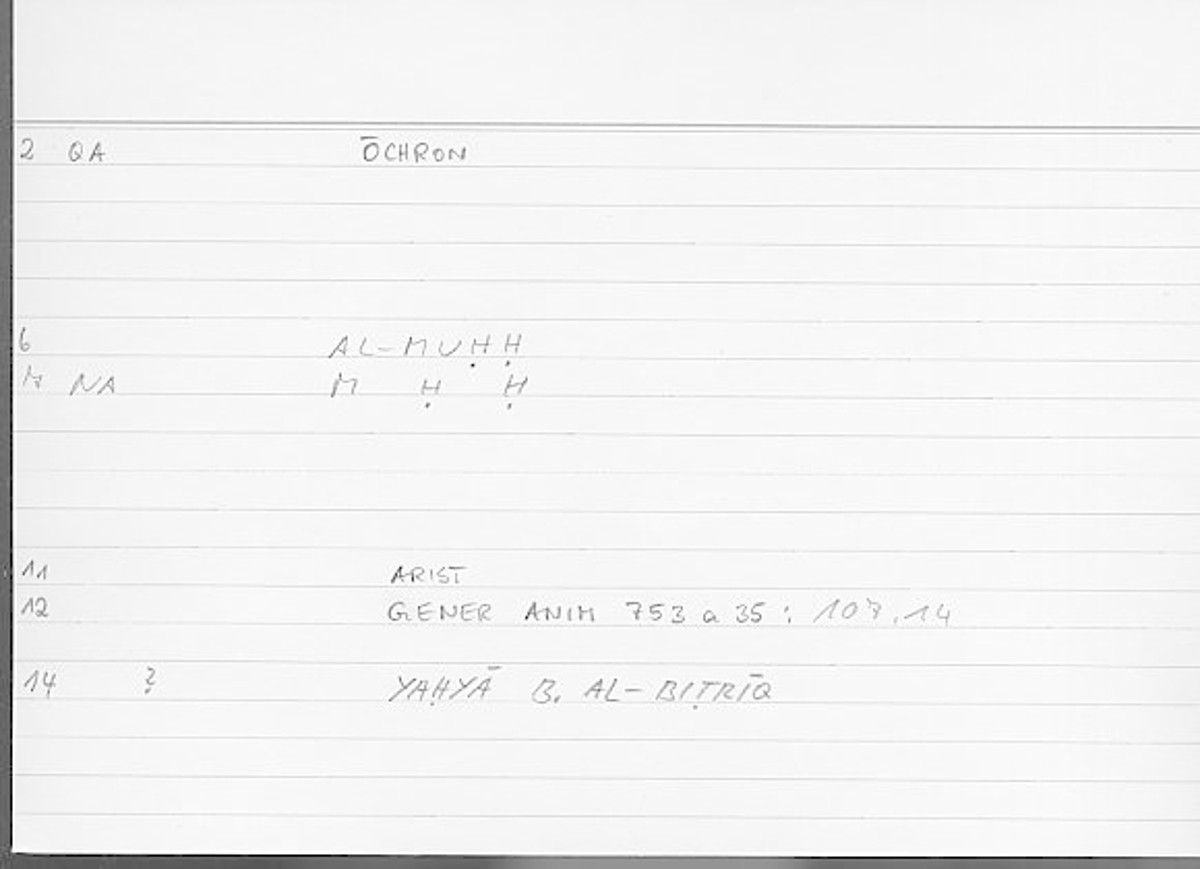 2 QA ŌCHRON
6 AL-MUḤḤ
NA M Ḥ Ḥ
11 ARIST
12 GENER ANIM 753 a 35 : 107.14
14 ? YAḤYĀ B. AL-BIṬRĪQ